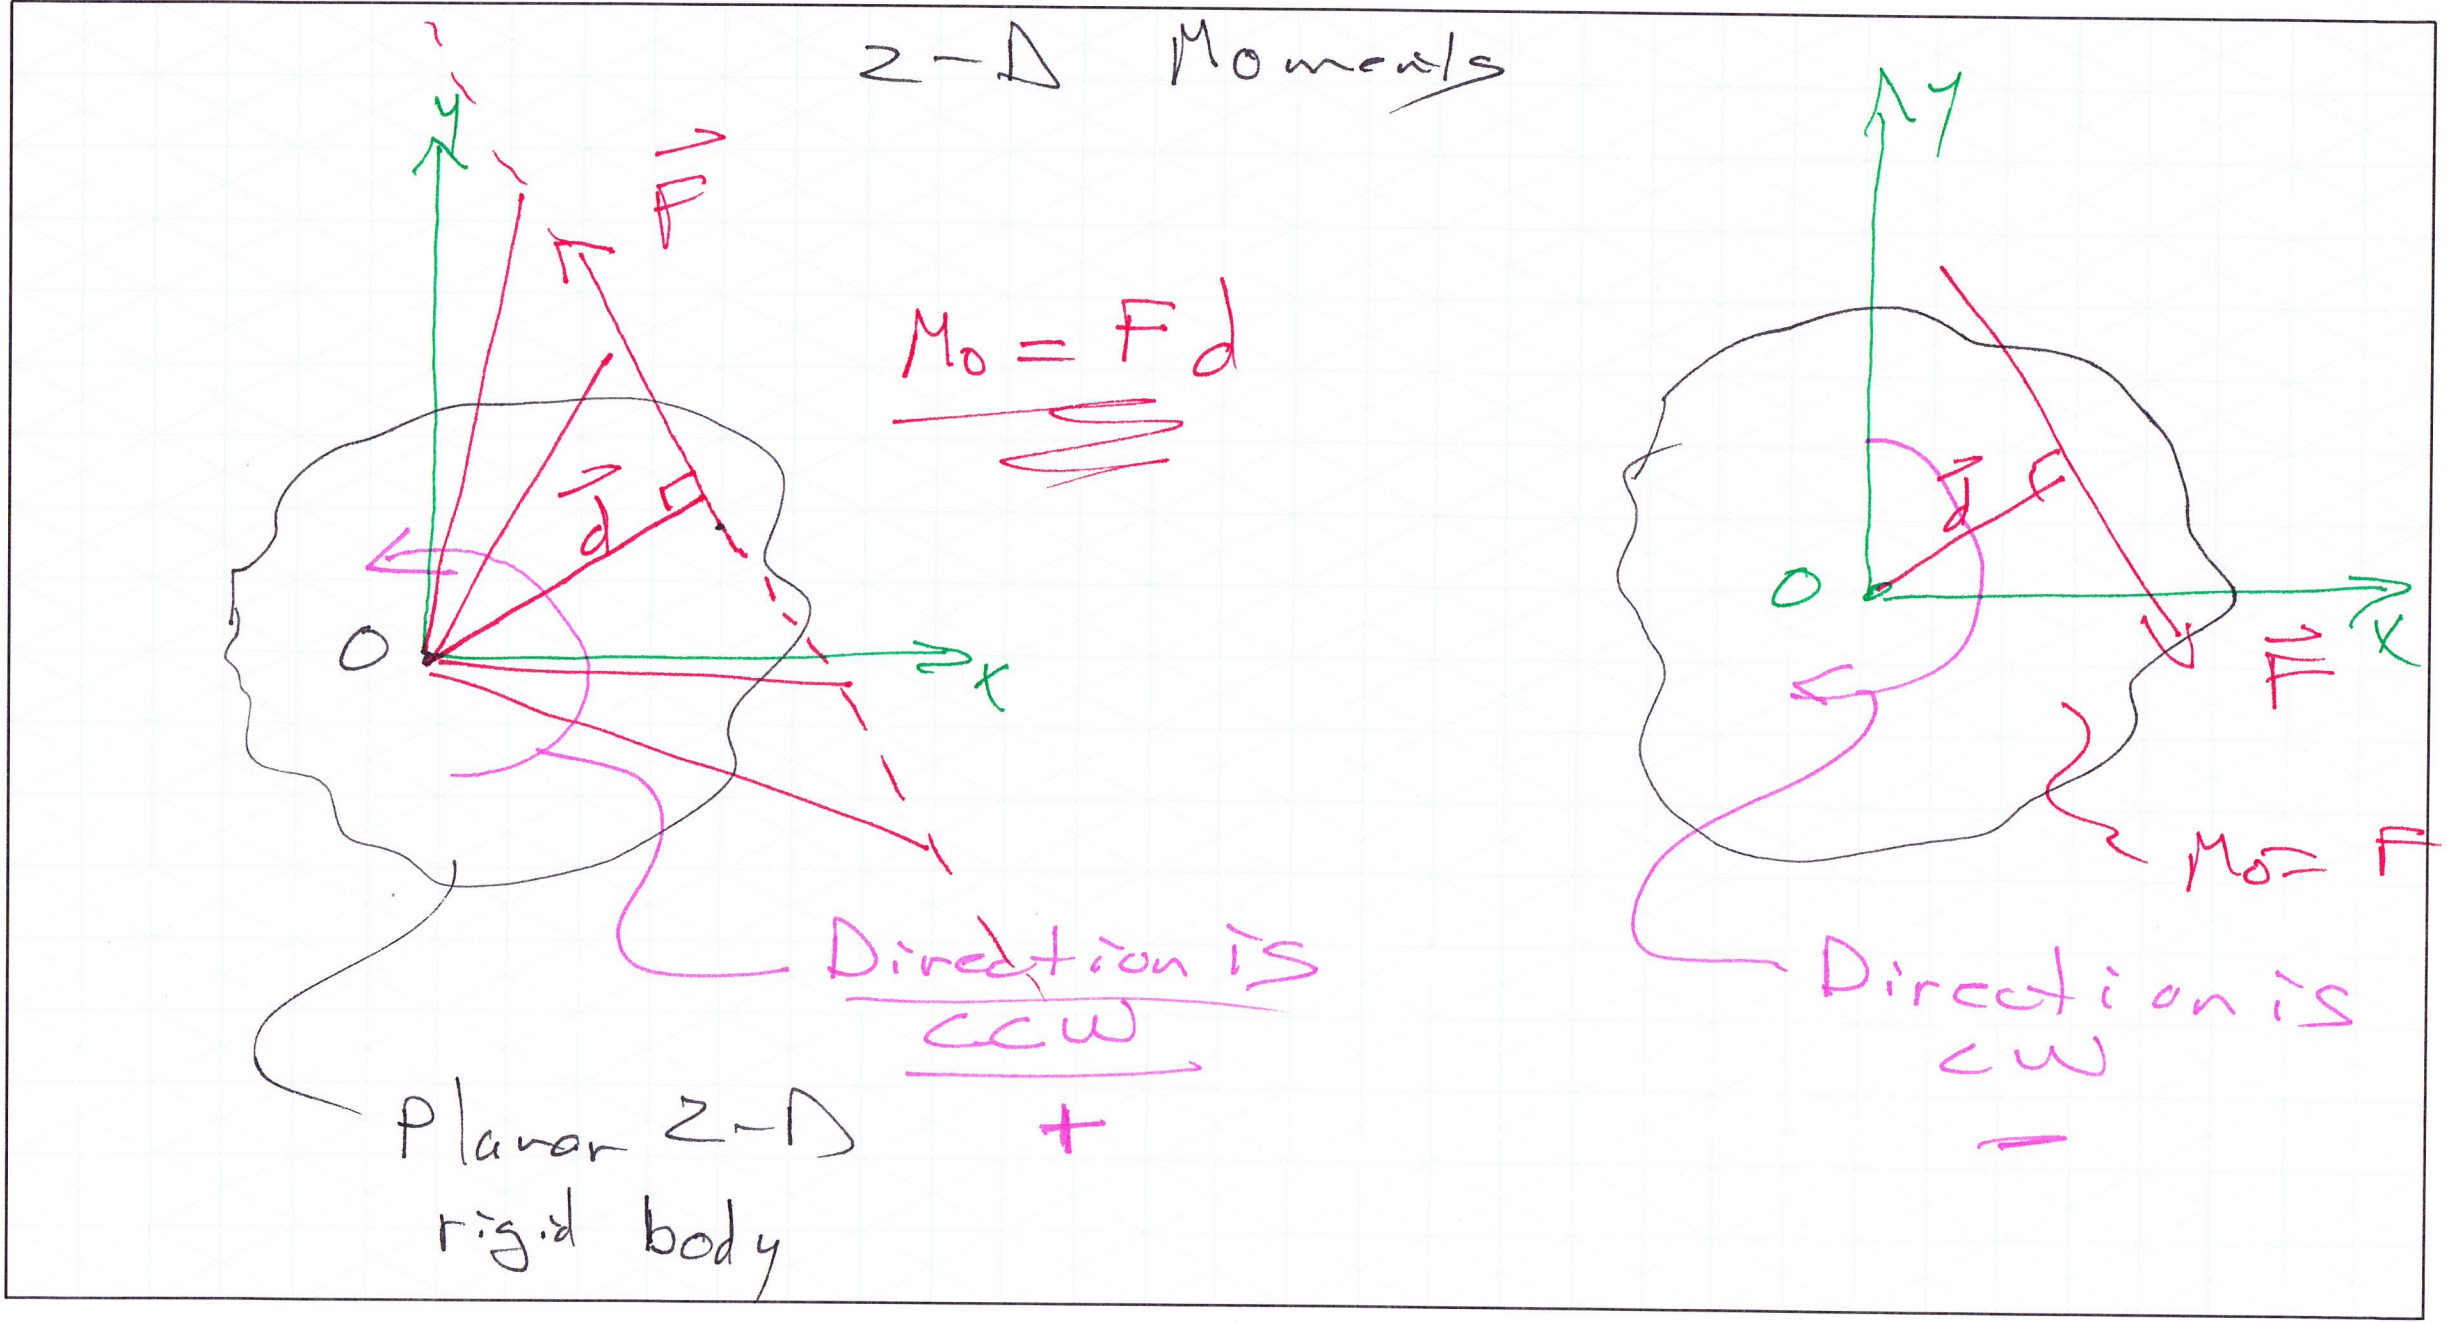 2-D Moments
y
F
M₀ = Fd
d
O
x
Direction is
ccw
+
Planar 2-D
rigid body
y
d
O
x
F
M₀ = F
Direction is
cw
−